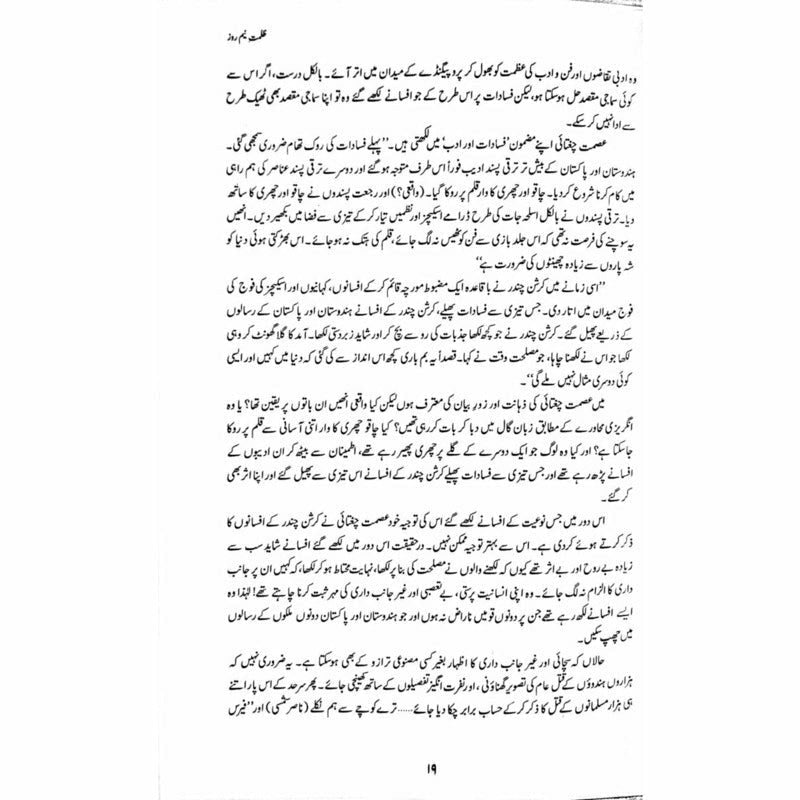 ظلمت نیم روز
وہ ادبی تقاضوں اور فن و ادب کی عظمت کو بھول کر پروپیگنڈے کے میدان میں اتر آئے۔ بالکل درست، اگر اس سے
کوئی سماجی مقصد حل ہو سکتا ہو، لیکن فسادات پر اس طرح کے جو افسانے لکھے گئے وہ تو اپنا سماجی مقصد بھی ٹھیک طرح
سے ادا نہیں کر سکے۔
عصمت چغتائی اپنے مضمون ’فسادات اور ادب‘ میں لکھتی ہیں۔ ’’پہلے فسادات کی روک تھام ضروری سمجھی گئی۔
ہندوستان اور پاکستان کے بیش تر ترقی پسند ادیب فوراً اس طرف متوجہ ہو گئے اور دوسرے ترقی پسند عناصر کی ہم راہی
میں کام کرنا شروع کر دیا۔ چاقو اور چھری کا وار قلم پر روکا گیا۔ (واقعی؟) اور رجعت پسندوں نے چاقو اور چھری کا ساتھ
دیا۔ ترقی پسندوں نے بالکل اسلحہ جات کی طرح ڈرامے اسکیچز اور نظمیں تیار کر کے تیزی سے فضا میں بکھیر دیں۔ انھیں
یہ سوچنے کی فرصت نہ تھی کہ اس جلد بازی سے فن کو ٹھیس نہ لگ جائے، قلم کی ہتک نہ ہو جائے۔ اس بھڑکتی ہوئی دنیا کو
شہ پاروں سے زیادہ چھینٹوں کی ضرورت ہے‘‘
’’اسی زمانے میں کرشن چندر نے باقاعدہ ایک مضبوط مورچہ قائم کر کے افسانوں، کہانیوں اور اسکیچز کی فوج کی
فوج میدان میں اتار دی۔ جس تیزی سے فسادات پھیلے، کرشن چندر کے افسانے ہندوستان اور پاکستان کے رسالوں
کے ذریعے پھیل گئے۔ کرشن چندر نے جو کچھ لکھا جذبات کی رو سے بچ کر اور شاید زبردستی لکھا۔ آمد کا گلا گھونٹ کر وہی
لکھا جو اس نے لکھنا چاہا، جو مصلحت وقت نے کہا۔ قصداً یہ بم باری کچھ اس انداز سے کی گئی کہ دنیا میں کہیں اور ایسی
کوئی دوسری مثال نہیں ملے گی‘‘۔
میں عصمت چغتائی کی ذہانت اور زور بیان کی معترف ہوں لیکن کیا واقعی انھیں ان باتوں پر یقین تھا؟ یا وہ
انگریزی محاورے کے مطابق زبان گال میں دبا کر بات کر رہی تھیں؟ کیا چاقو چھری کا وار اتنی آسانی سے قلم پر روکا
جا سکتا ہے؟ اور کیا وہ لوگ جو ایک دوسرے کے گلے پر چھری پھیر رہے تھے، اطمینان سے بیٹھ کر ان ادیبوں کے
افسانے پڑھ رہے تھے اور جس تیزی سے فسادات پھیلے کرشن چندر کے افسانے اس تیزی سے پھیل گئے اور اپنا اثر بھی
کر گئے۔
اس دور میں جس نوعیت کے افسانے لکھے گئے اس کی توجیہ خود عصمت چغتائی نے کرشن چندر کے افسانوں کا
ذکر کرتے ہوئے کر دی ہے۔ اس سے بہتر توجیہ ممکن نہیں۔ درحقیقت اس دور میں لکھے گئے افسانے شاید سب سے
زیادہ بے روح اور بے اثر تھے کیوں کہ لکھنے والوں نے مصلحت کی بنا پر لکھا، نہایت محتاط ہو کر لکھا، کہ کہیں ان پر جانب
داری کا الزام نہ لگ جائے۔ وہ اپنی انسانیت پرستی، بے تعصبی اور غیر جانب داری کی مہر ثبت کرنا چاہتے تھے! لہٰذا وہ
ایسے افسانے لکھ رہے تھے جن پر دونوں قومیں ناراض نہ ہوں اور جو ہندوستان اور پاکستان دونوں ملکوں کے رسالوں
میں چھپ سکیں۔
حالاں کہ سچائی اور غیر جانب داری کا اظہار بغیر کسی مصنوعی ترازو کے بھی ہو سکتا ہے۔ یہ ضروری نہیں کہ
ہزاروں ہندوؤں کے قتل عام کی تصویر گھناؤنی، اور نفرت انگیز تفصیلوں کے ساتھ کھینچی جائے۔ پھر سرحد کے اس پار اتنے
ہی ہزار مسلمانوں کے قتل کا ذکر کر کے حساب برابر چکا دیا جائے......ترے کوچے سے ہم نکلے (ناصر شمسی) اور ’’فیرس
۱۹